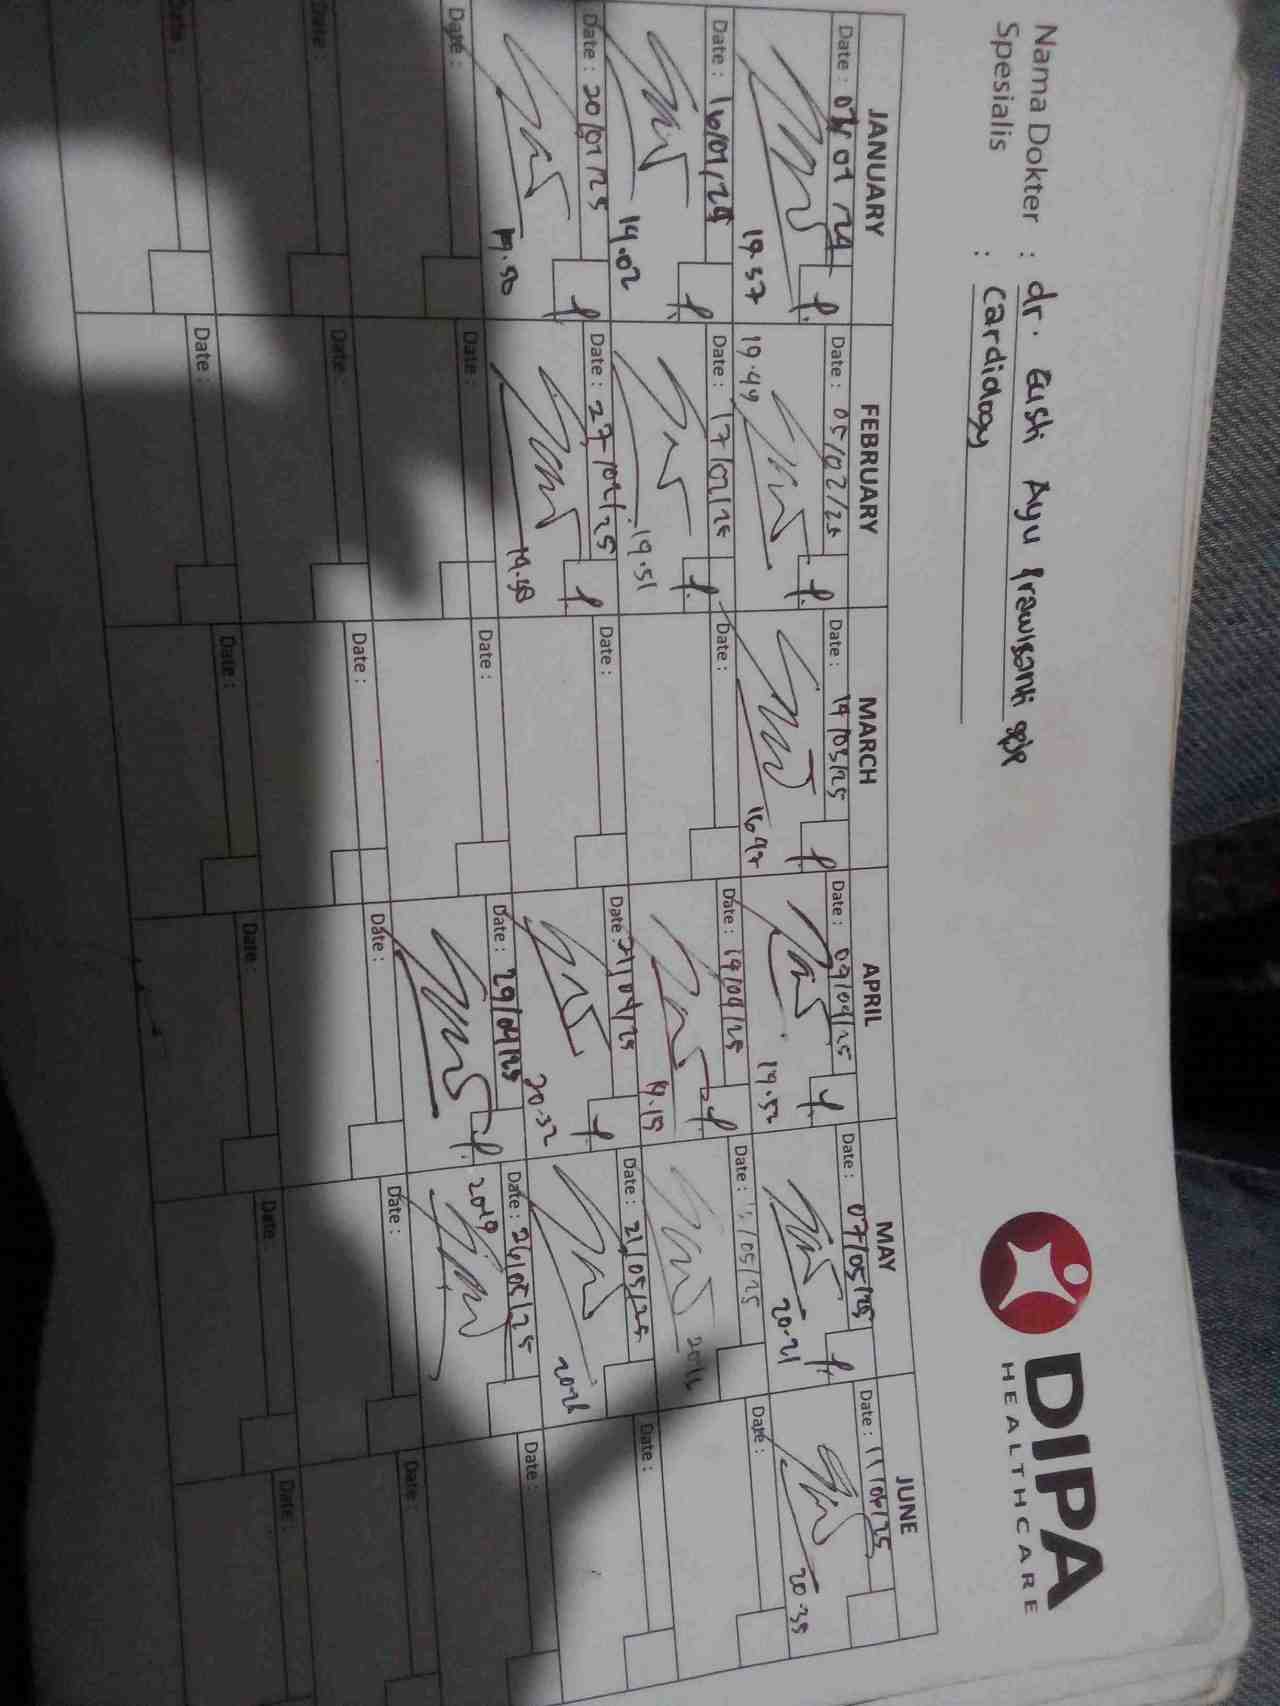 DIPA
HEALTHCARE
Nama Dokter : dr. Gusti Ayu Prawisanti spJP
Spesialis : Cardiology
JANUARY FEBRUARY MARCH APRIL MAY JUNE
Date : 01/24 Date : 05/02/25 Date : 19/03/25 Date : 09/04/25 Date : 07/05/25 Date : 11/06/25
19.57 19.49 16.47 19.52 20.21 20.35
Date : 16/01/25 Date : 17/02/25 Date : Date : 19/04/25 Date : /05/25 Date :
19.02 19.51 19.15
Date : 20/01/25 Date : 27/02/25 Date : Date : 21/04/25 Date : 21/05/25 Date :
19.50 19.58 20.32
Date : Date : Date : Date : 29/04/25 Date : 26/05/25 Date :
20.19
Date : Date : Date : Date : Date : Date :
Date : Date : Date : Date : Date : Date :